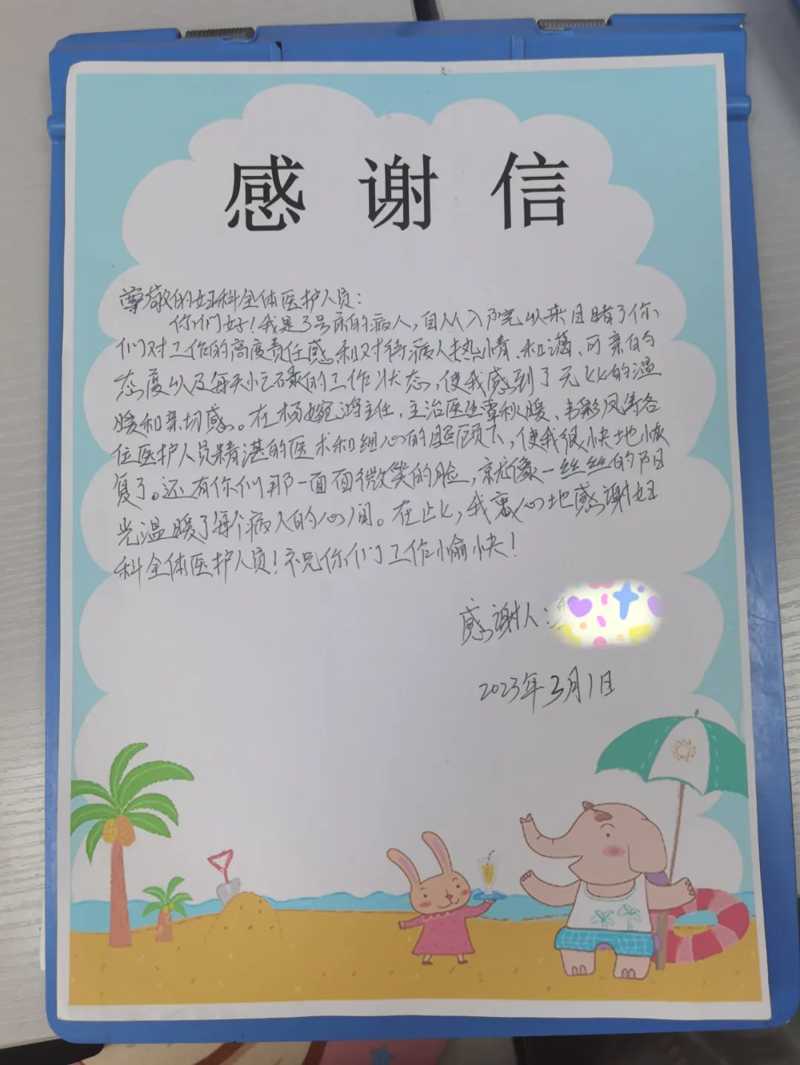 感谢信
尊敬的妇科全体医护人员：
你们好！我是3号床的病人，自从入院以来目睹了你
们对工作的高度责任感和对待病人热情、和蔼、可亲的
态度以及每天忙碌的工作状态，使我感到了无比的温
暖和亲切感。在杨婉鸿主任，主治医生覃秋暖、韦彩凤等各
位医护人员精湛的医术和细心的照顾下，使我很快地恢
复了。还有你们那一面面微笑的脸，就像一丝丝的阳
光温暖了每个病人的心间。在此，我衷心地感谢妇
科全体医护人员！祝你们工作愉快！
感谢人：
2023年3月1日